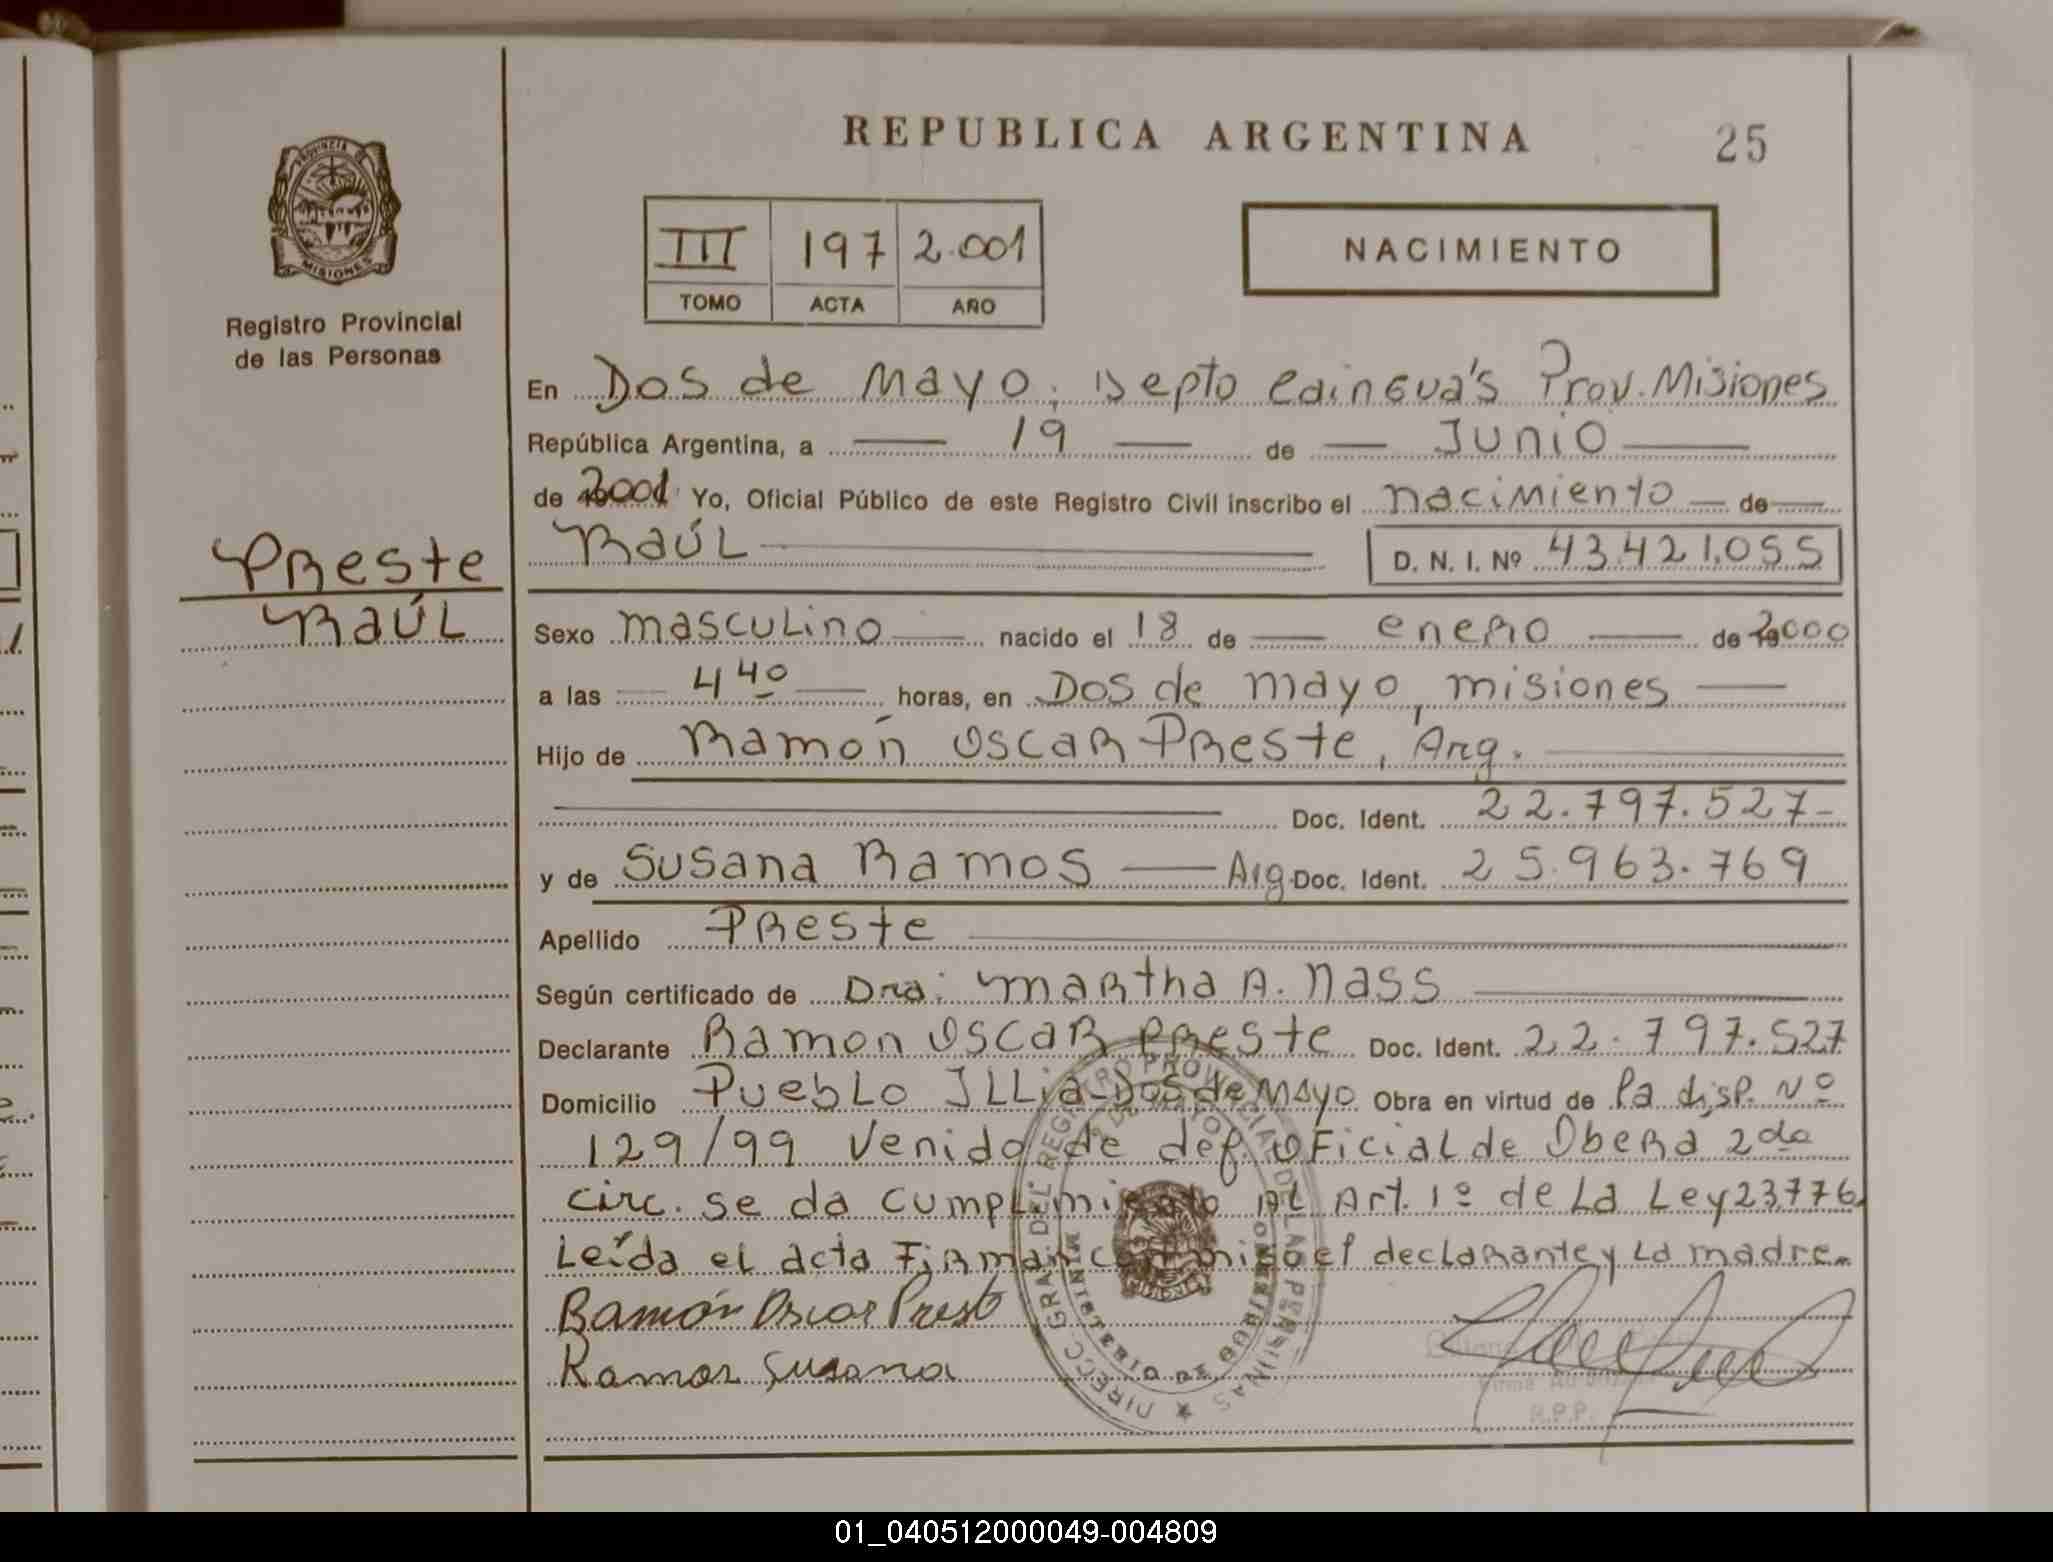 REPUBLICA ARGENTINA
25
PROVINCIA DE
MISIONES
Registro Provincial
de las Personas
III 197 2.001
TOMO ACTA AÑO
NACIMIENTO
En Dos de Mayo, Depto Cainguá's Prov. Misiones
República Argentina, a 19 de Junio
de 2001 Yo, Oficial Público de este Registro Civil inscribo el nacimiento de
Raúl
D. N. I. Nº 43.421.055
Preste
Raúl
Sexo masculino nacido el 18 de enero de 2000
a las 4 40 horas, en Dos de mayo, misiones
Hijo de Ramón Oscar Preste, Arg.
Doc. Ident. 22.797.527-
y de Susana Ramos Arg. Doc. Ident. 25.963.769
Apellido Preste
Según certificado de Dra: Martha A. Nass
Declarante Ramon Oscar Preste Doc. Ident. 22.797.527
Domicilio Pueblo ILLia-Dos de Mayo Obra en virtud de la disp. Nº
129/99 Venido de def. Oficial de Obera 2da
circ. se da cumplimiento al Art. 1º de La Ley 23.776.
Leída el acta Firman conmigo el declarante y La madre.
Ramón Oscar Prest
Ramos Susana
DIRECC. GRAL. DEL REGISTRO PROVINCIAL DE LAS PERSONAS
MINISTERIO DE GOBIERNO
2 DE MAYO
R.P.P.
01_040512000049-004809